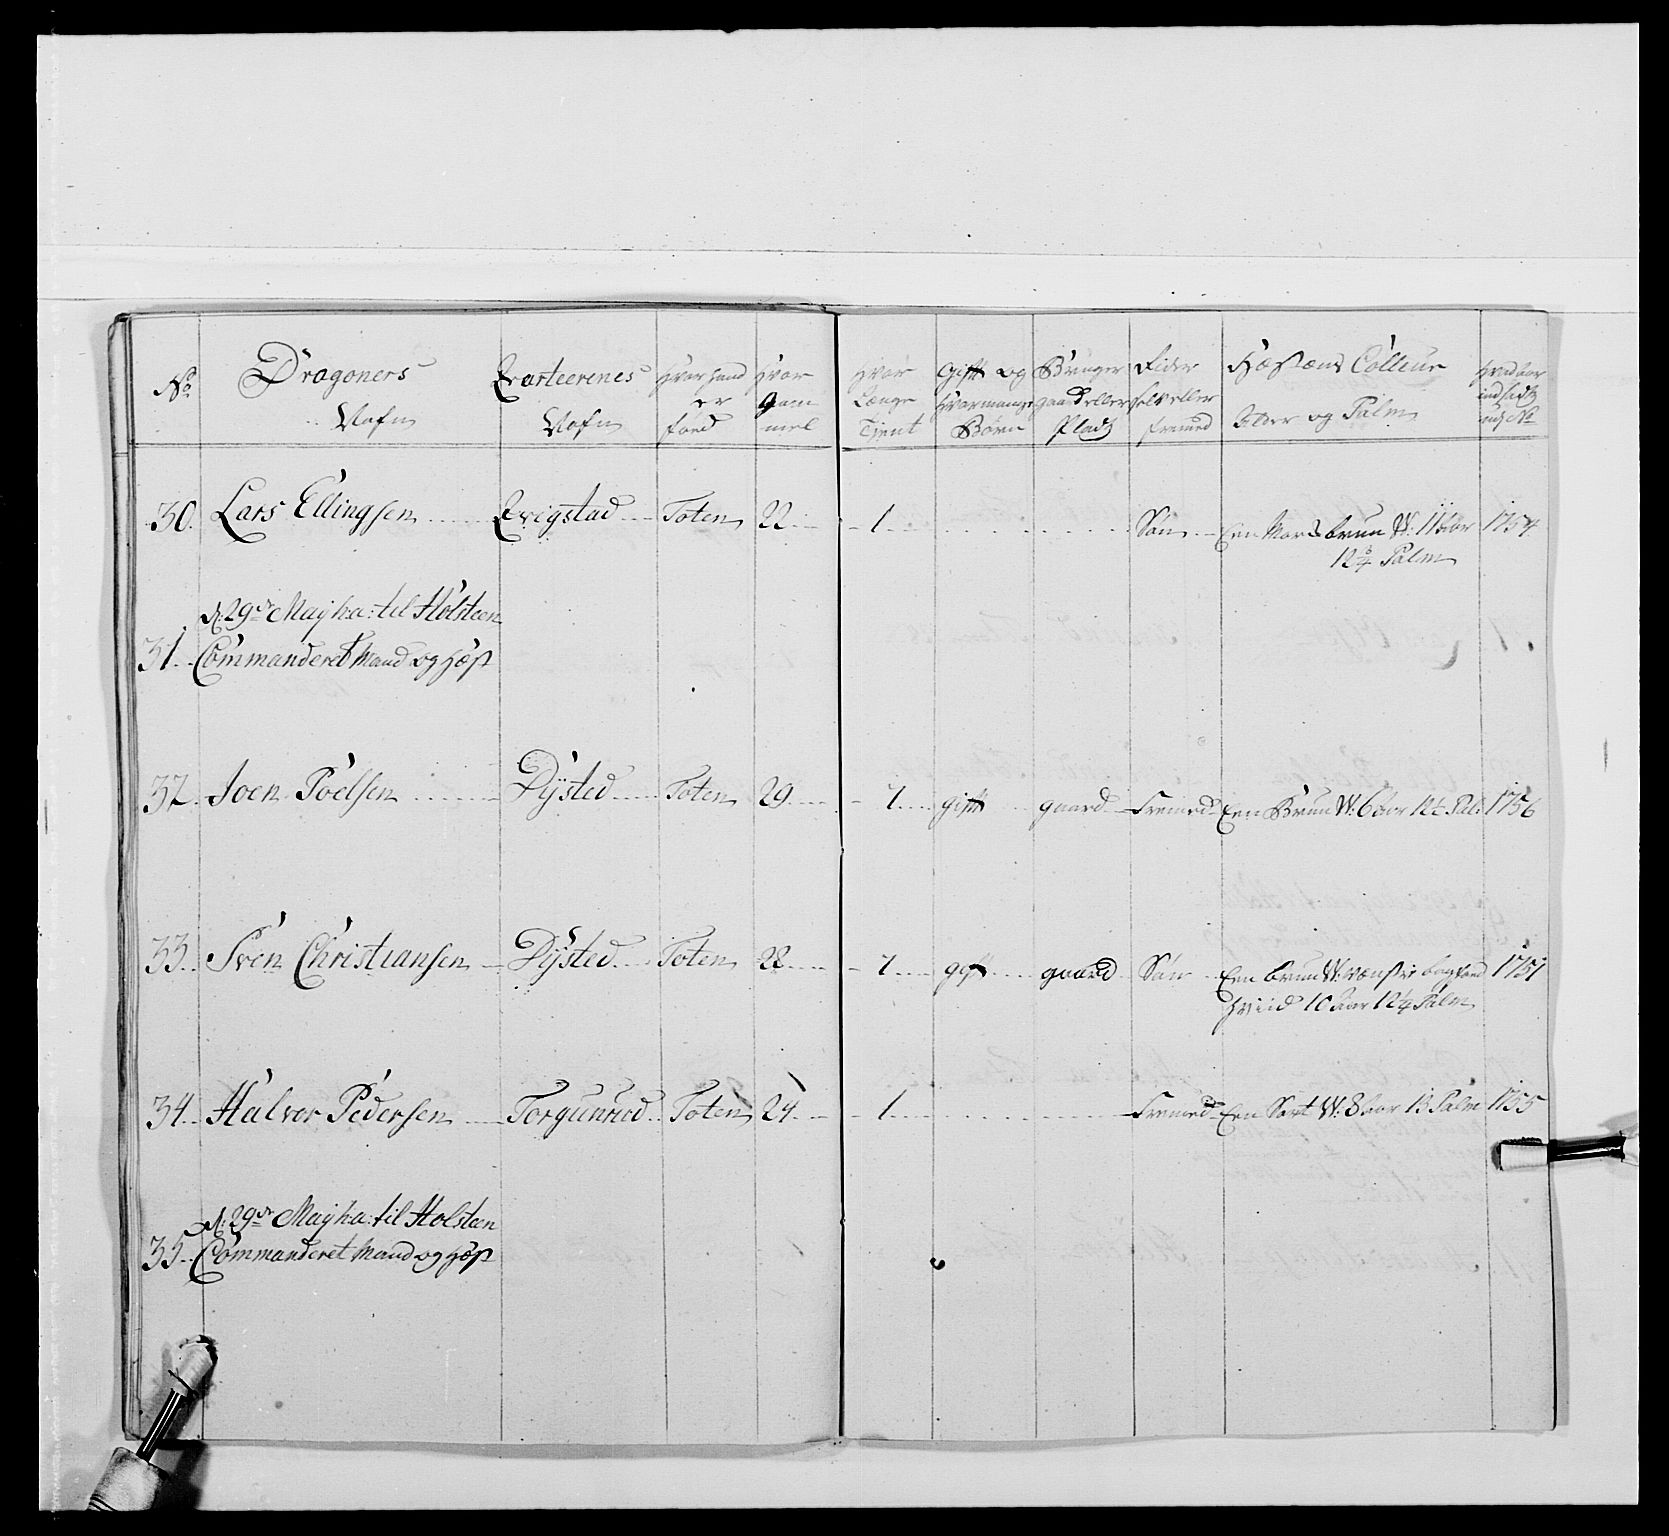 No Dragoners Nafn | Qvarteerenes Nafn | Hvor hand er foed | Hvor Gam mel | Hvor Længe Tient | Gift og Hvormange Börn | Bruuger gaard eller Pladz | Rider selv eller fremed | Hæstens Colleur Alder og Palm | Hvad aar indsadt udj No
30. Lars Ellingsen | Qvigstad | Toten | 22 | 1 | Sön | Een Mordbrun W. 11 aar | 1754
12 3/4 Palm
d. 29de Maij h:a: til Holsteen
31. Commanderet Mand og Hæst
32. Joen Poelsen | Dÿsted | Toten | 29 | 7 | gift | gaard | Fremed | Een Brun W. 6 aar 12½ Pal: | 1756
33. Sven Christiansen | Dÿsted | Toten | 28 | 7 | gift | gaard | Sön | Een brun W. vænstre bagfoed | 1751
hviid 10 aar 12¼ Palm
34. Halvor Pedersen | Torgunrud | Toten | 24 | 1 | Fremed | Een Sort W. 8 aar 13 Palm | 1755
d. 29de Maij h:a: til Holsteen
35. Commanderet Mand og Hæst